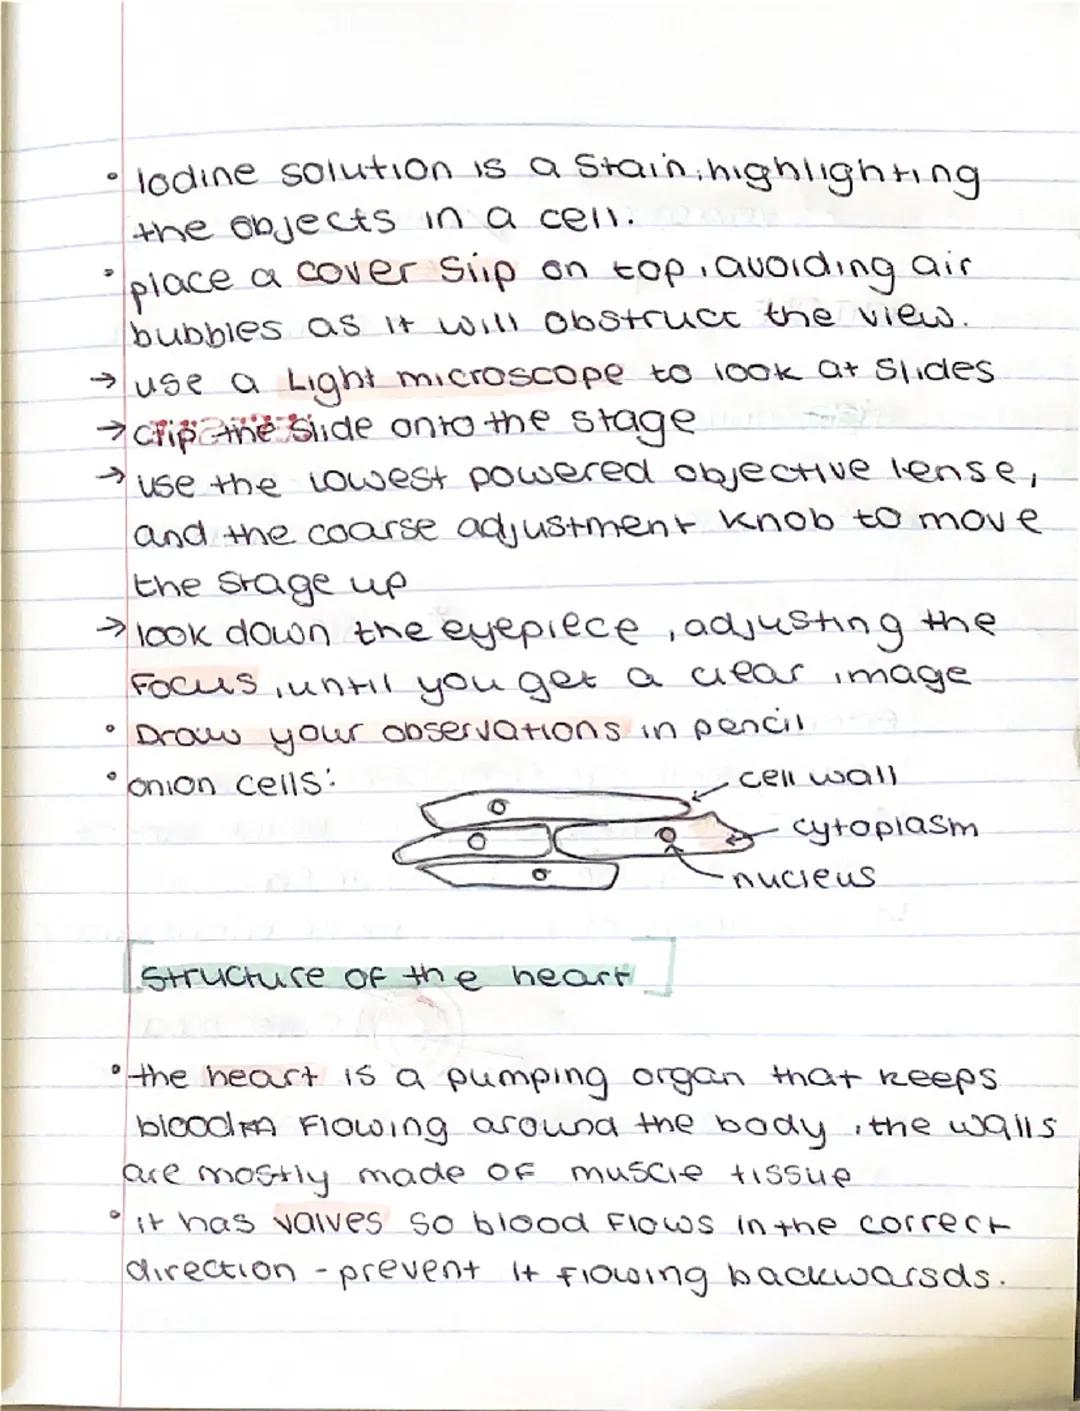 • Iodine solution is a stain, highlighting
the objects in a cell.
• place a cover slip on top, avoiding air
bubbles as it will obstruct the view.
→ use a Light microscope to look at slides
→ clip the slide onto the stage
→ use the lowest powered objective lense,
and the coarse adjustment knob to move
the stage up
→ look down the eyepiece, adjusting the
focus, until you get a clear image
• Draw your observations in pencil
• onion cells:
cell wall
cytoplasm
nucleus
[Structure of the heart]
• the heart is a pumping organ that keeps
blood flowing around the body, the walls
are mostly made of muscle tissue
• it has valves so blood flows in the correct
direction - prevent it flowing backwarsds.